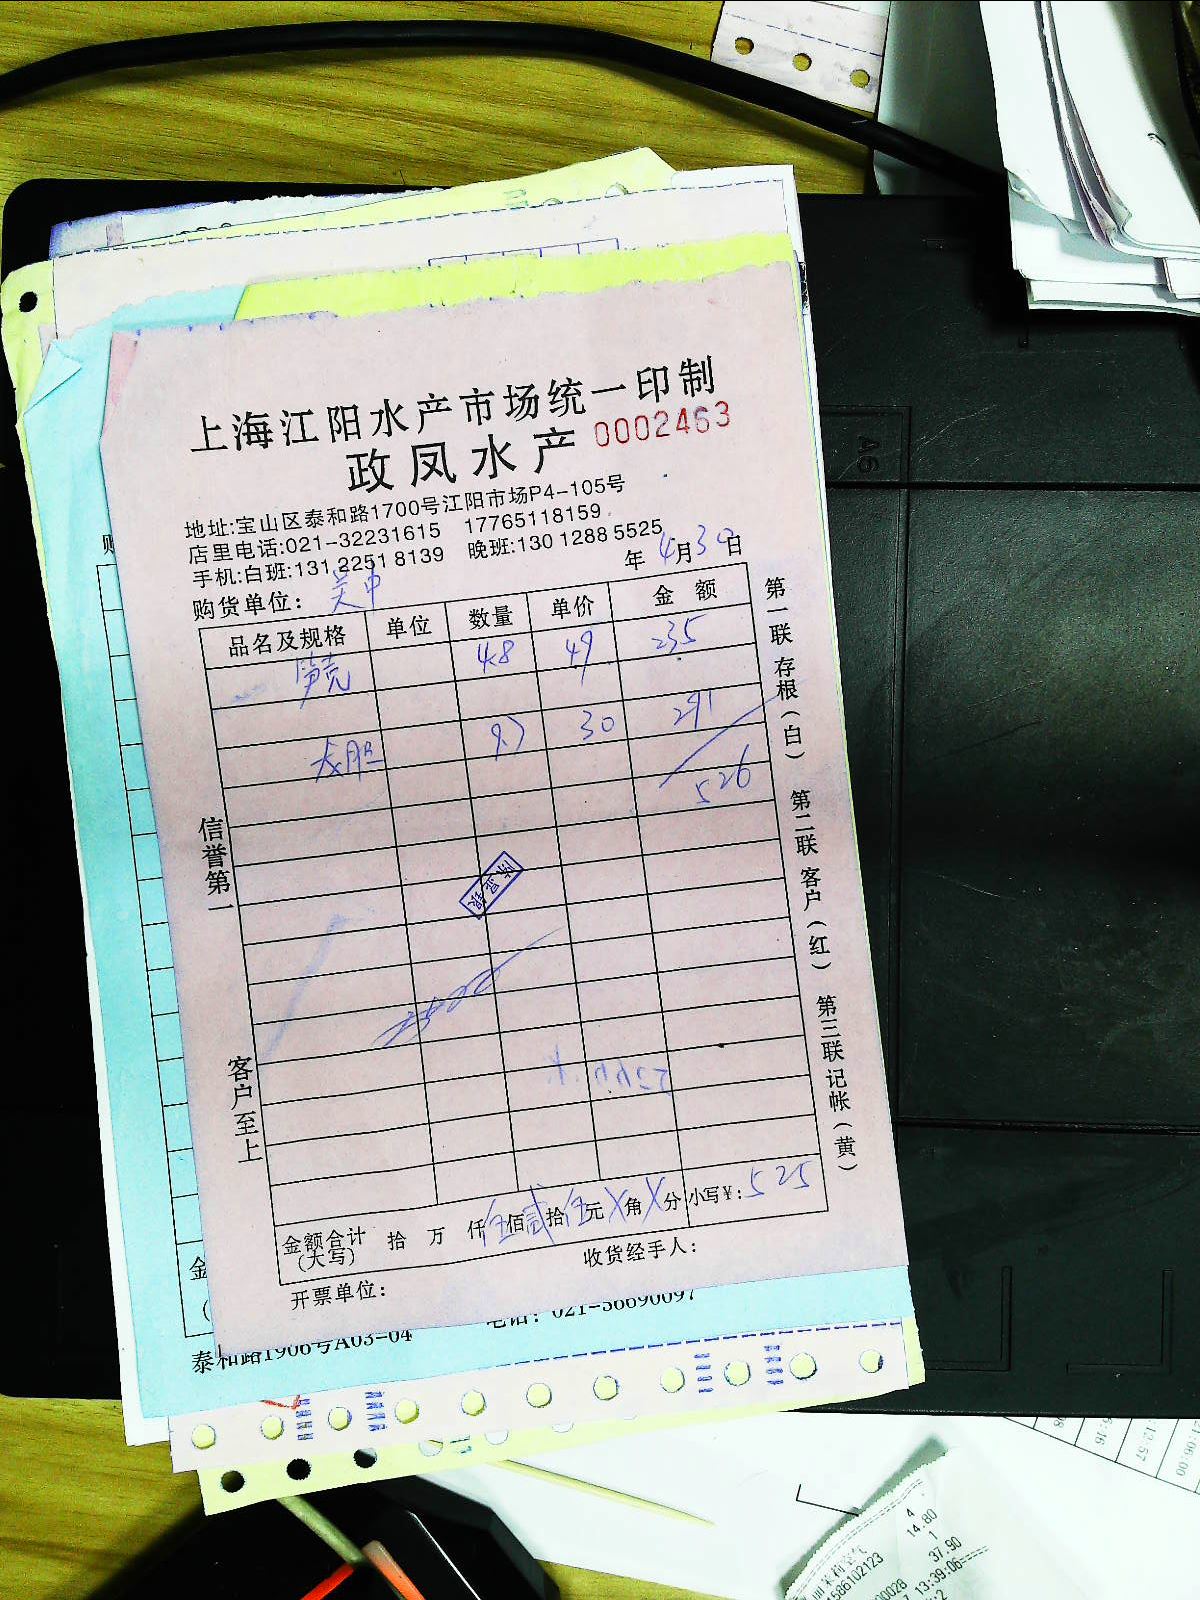 上海江阳水产市场统一印制
政凤水产 0002463
地址:宝山区泰和路1700号江阳市场P4-105号
店里电话:021-32231615 17765118159
手机:白班:131 2251 8139 晚班:130 1288 5525
年 4月30日
购货单位: 吴中
品名及规格 单位 数量 单价 金额
笋壳 4.8 49 235
龙胆 9.7 30 291
526
信誉第一
客户至上
第一联 存根(白) 第二联 客户(红) 第三联 记帐(黄)
金额合计(大写) 拾 万 仟 伍佰贰拾伍元X角X分 小写¥: 525
开票单位: 收货经手人:
泰和路1906号A03-04 电话: 021-56690097
A6
4
14.80
1
37.90
13:39:06